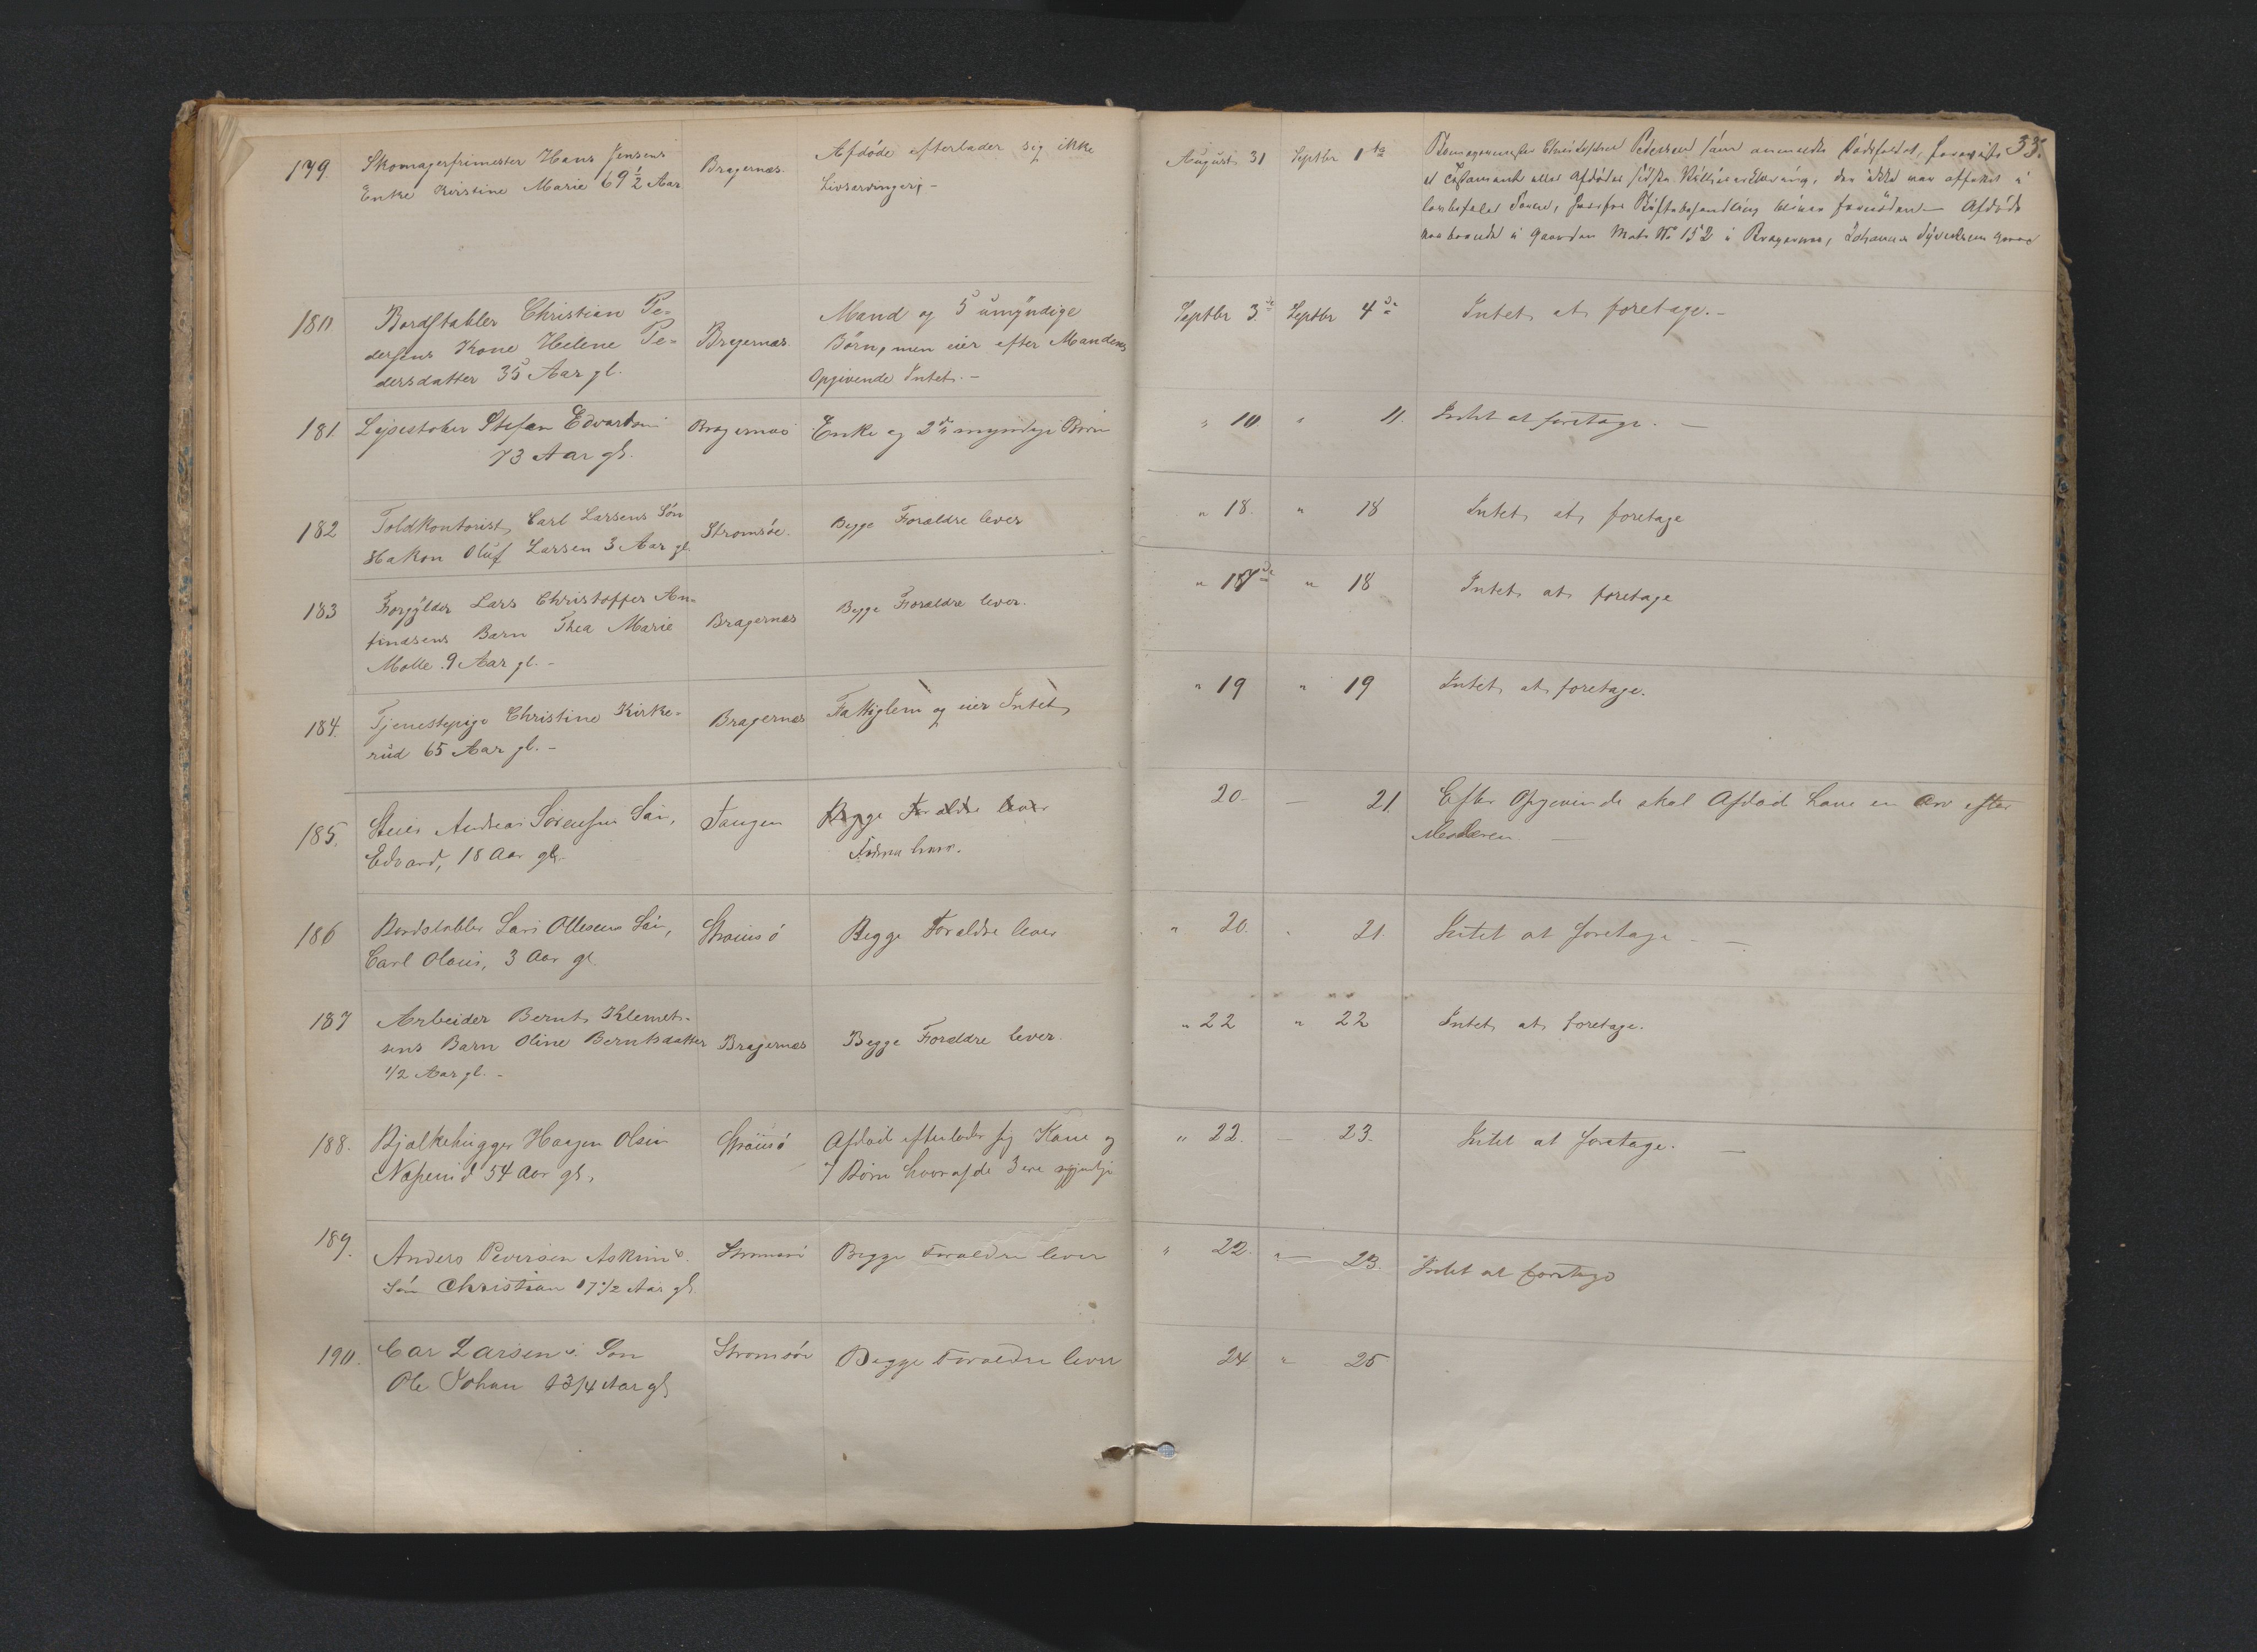 33.
179. Skomagerfrimester Hans Jensens
Enke Kirstine Marie 69 1/2 Aar
Bragernæs.
Afdöde efterlader sig ikke
Livsarvinger; -
August 31 Septbr 1ste
Skomagermester Pedersen som anmeldte Dödsfaldet, foreviste
et Testament eller Afdödes sidste Villieserklæring, der ikke var affattet i
lovbefalet Form, hvorfor Skiftebehandling bliver fornöden — Afdöde
havde boende i Gaarden Matr No 152 i Bragernæs, Johannes Gaard
180 Bordstabler Christian Pe-
dersens Kone Helene Pe-
dersdatter 35 Aar gl.
Bragernæs
Mand og 5 umyndige
Börn, men eier efter Mandens
Opgivende Intet. -
Septbr 3de Septbr 4de Intet at foretage. -
181. Stefan Edvardsen
73 Aar gl.
Bragernæs Enke og 2de myndige Börn
" 10 " 11. Intet at foretage. —
182 Toldkontorist Carl Larsens Sön
Hakon Oluf Larsen 3 Aar gl
Strömsöe. Begge Forældre lever
" 18. " 18 Intet at foretage
183 Forgylder Lars Christoffer An-
findsens Barn Thea Marie
Molle 9 Aar gl. -
Bragernæs Begge Forældre lever.
" 17de " 18 Intet at foretage
184. Tjenestepige Christine Kirke-
rud 65 Aar gl. -
Bragernæs Fattiglem og eier Intet
" 19 " 19 Intet at foretage.
185. Andreas Sörensens Sön,
Edvard, 18 Aar gl.
Tangen Begge Forældre lever
20. — 21. Efter Opgivende skal Afdöd have en Arv efter
Moderen —
186 Bordstabler Lars Ollesens Sön,
Carl Olaus, 3 Aar gl.
Strömsö Begge Forældre lever
" 20. " 21. Intet at foretage - —
187 Arbeider Bernt Klemet-
sens Barn Oline Berntsdatter
1/2 Aar gl. -
Bragernæs Begge Forældre lever.
" 22 " 22 Intet at foretage.
188. Bjælkehugger Haagen Olsen
54 Aar gl.
Strömsö Afdöde efterlader sig Kone og
7 Börn hvoraf de 3 ere myndige
" 22. — 23. Intet at foretage. —
189. Anders Petersen Askim s.
Sön Christian 17 1/2 Aar gl.
Strömsö Begge Forældre lever
" 22. " — 23. Intet at foretage
190. Carl Larsen s. Sön
Ole Johan 3/4 Aar gl
Strömsöe Begge Forældre lever
24 " 25